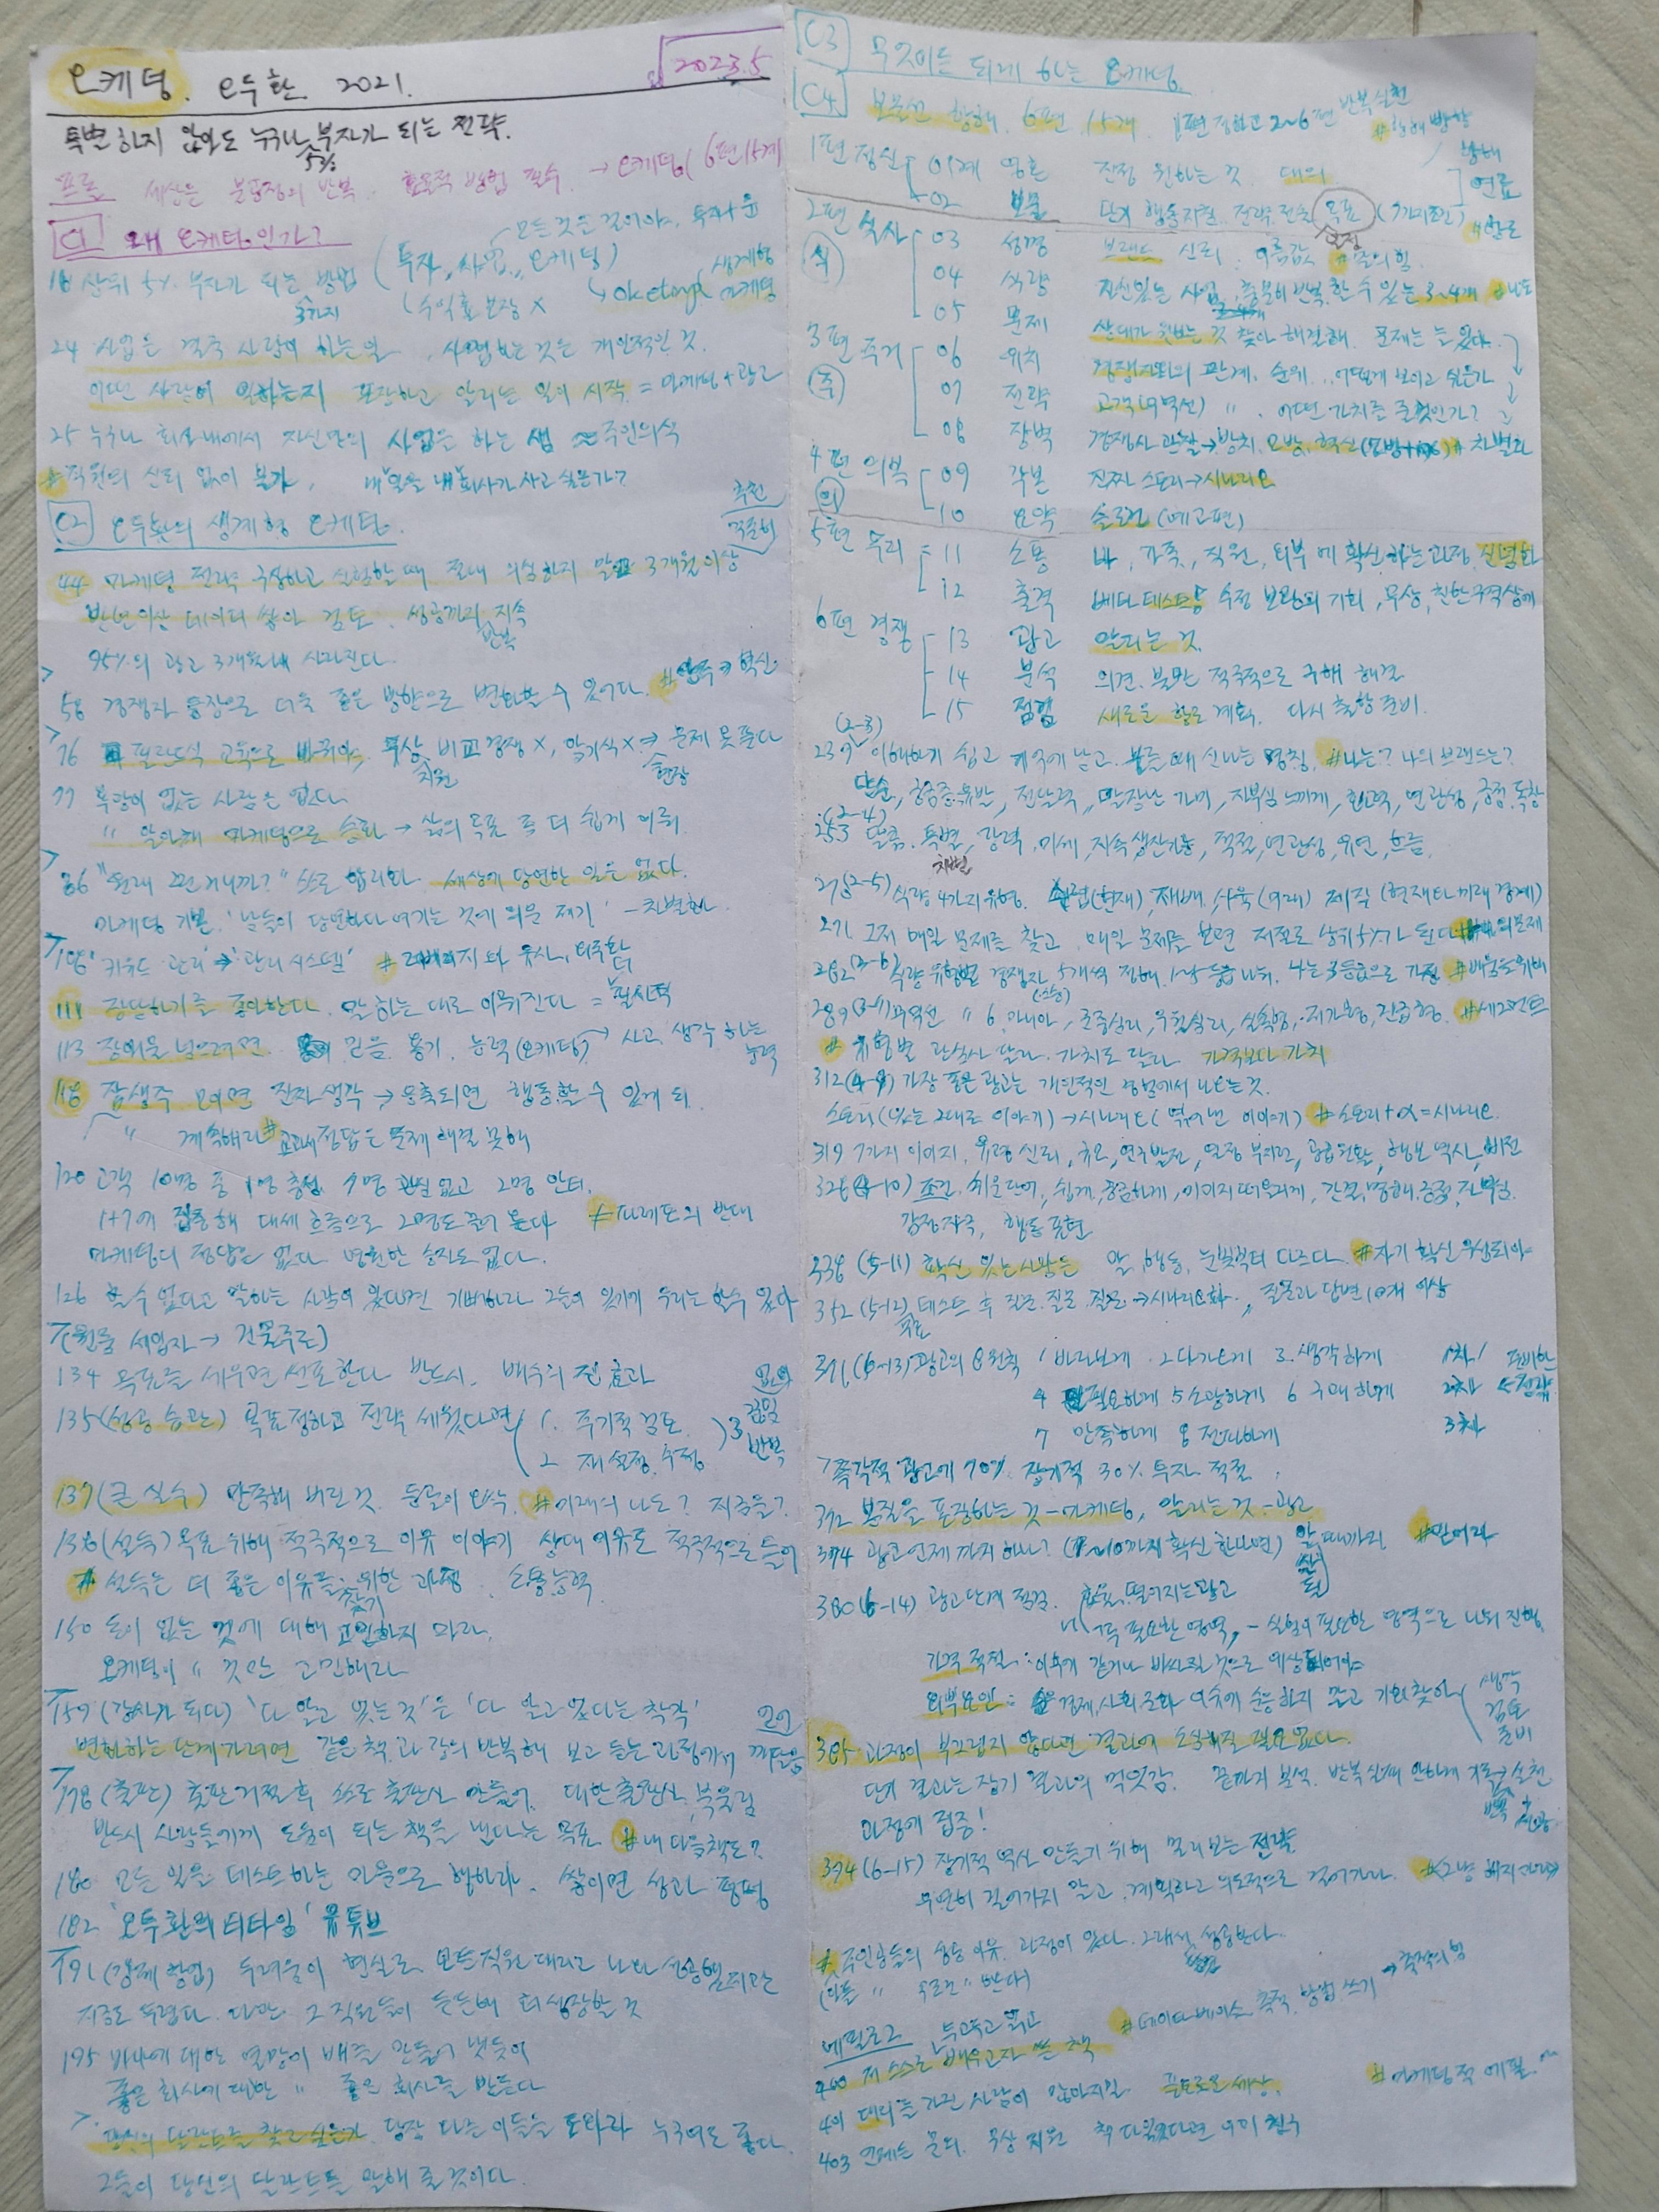 오케팅. 오두환. 2021.
2023.5
특별하지 않아도 누구나 부자가 되는 전략.
5%
프롤 세상은 불공정의 반복. 효율적 방법 필수. → 오케팅(6편 15계
C1 왜 오케팅인가?
18 상위 5% 부자가 되는 방법 (투자, 사업, 오케팅)
3가지 (수익률 보장 X → oketing 생계형 마케팅
24 사업은 결국 사람이 하는 일, 사업하는 것은 개인적인 것.
어떤 사람이 일하는지 포장하고 알리는 일이 시작 = 마케팅+광고
25 누구나 회사내에서 자신만의 사업을 하는 셈 주인의식
#직원의 신뢰 없이 불가, 내 일을 내 회사가 사고 싶은가?
C2 오두환의 생계형 오케팅.
44 마케팅 전략 구성하고 실행할 때 절대 의심하지 말고 3개월 이상
반년 이상 데이터 쌓아 검토. 성공까지 지속
반복
95%의 광고 3개월내 사라진다.
58 경쟁자 등장으로 더욱 좋은 방향으로 변화할 수 있어다. #안주→혁신
76 핀란드식 교육으로 바꿔야, 무상, 비교경쟁 X, 암기식 X → 문제 못 푼다
지원 현장
77 불만이 없는 사람은 없다.
〃 알아내 마케팅으로 승화 → 삶의 목표 쪽 더 쉽게 이뤄
86 "원래 그런거니까?" 스스로 합리화. 세상에 당연한 일은 없다.
마케팅 기본. '남들이 당연하다 여기는 것에 의문 제기' - 차별화
108 키워드 관리 → '관리 시스템'
111 장담하기를 좋아한다. 말하는 대로 이뤄진다 =
113 장애물 넘으려면 믿음, 용기, 능력(오케팅) → 사고, 생각하는 능력
118 잡생각 모이면 진짜 생각 → 응축되면 행동할 수 있게 되.
〃 계속해라 # 교과서 정답은 문제 해결 못해
120 고객 10명 중 1명 충성 7명 관심 없고 2명 안티.
1+7에 집중해 대세 흐름으로 2명도 끌어 온다 #파레토의 반대
마케팅의 정답은 없다 영원한 승자도 없다.
126 할 수 없다고 말하는 사람이 있다면 기뻐하라 그들이 있기에 우리는 할수 있다
(원룸 세입자 → 건물주로)
134 목표를 세우면 선포한다 반드시. 배수의 진 효과
135(성공 습관) 목표 정하고 전략 세웠다면 (1. 주기적 검토
2 재설정, 수정 )3 반복
137(큰 실수) 만족해 버린 것. 둥글이 #미래의 나도? 지금을?
138(설득) 목표 위해 적극적으로 이유 이야기 상대 이유도 적극적으로 들어
# 설득은 더 좋은 이유를 찾기 위한 과정. 소통능력
150 돈이 없는 것에 대해 고민하지 마라.
오케팅이 〃 것만 고민해라
159(강사가 되다) '다 알고 있는 것'은 '다 알고 있다는 착각'
변화하는 단계 가려면 같은 책과 강의 반복해 보고 듣는 과정에서 깨달음
178(출판) 출판 거절 후 스스로 출판사 만들어. 대한출판사, 북웅림
반드시 사람들에게 도움이 되는 책을 낸다는 목표 #내 다음책도?
180 모든 일을 테스트하는 마음으로 행하라. 쌓이면 성과
182 '오두환의 티타임' 유튜브
191(강제 창업) 두려움이 현실로 모든직원 데리고 나와 성공했지만
지금도 두렵다. 다만 그 직원들이 든든해 더 성장할 것
195 바다에 대한 열망이 배를 만들어 냈듯이
좋은 회사에 대한 〃 좋은 회사를 만든다
당신의 달란트를 찾고 싶은가 당장 다른 이들을 도와라 누구여도 좋다.
그들이 당신의 달란트를 말해 줄 것이다.
C3 무엇이든 되게 하는 오케팅
C4 보물선 항해. 6편 15계. 1편 정하고 2~6편 반복 실천
#항해 방향
1편 정신 01계 영혼 진정 원하는 것. 대의
항해 연료
02 보물 단기 행동지침. 전략 전술 목표 (7가지 조건)
2편 식사 03 성경 브랜드 신뢰. 이름값
(식) 04 식량 자신있는 사업, 충분히 반복할 수 있는 3~4개
05 문제 상대가 원하는 것 찾아 해결해. 문제는 늘 있다.
3편 주거 06 위치 경쟁자와의 관계. 순위.. 어떻게 보이고 싶은가
(주) 07 전략 고객(과녁선) 〃. 어떤 가치를 줄 것인가?
08 장벽 경쟁사 관찰 → 방치, 모방, 혁신 # 차별화
4편 의복 09 각본 진짜 스토리 → 시나리오
(의) 10 요약 슬로건 (예고편)
5편 무리 11 소통 나, 가족, 직원, 외부에 확신하는 과정. 신념화
12 출격 베타 테스트 수정 보완의 기회, 무상, 친한 고객 상대
6편 경쟁 13 광고 알리는 것.
14 분석 의견. 불만 적극적으로 구해 해결
15 점검 새로운 항로 계획. 다시 출항 준비.
239 (2-3) 이해하기 쉽고 기억에 남고 부를 때 신나는 명칭. #나는? 나의 브랜드는?
단순, 궁금증 유발, 전달력, 말장난 가미, 자부심 느끼게, 연관성, 긍정, 독창
253 (2-4) 달콤. 특별, 강력, 미끼, 지속생산가능, 적절, 연관성, 유연, 흐름.
차별
278(2-5) 식량 4가지 유형. 수렵(현재), 재배, 사육(미래) 제작 (현재와 미래 경계)
271 그저 매일 문제를 찾고 매일 문제를 보면 저절로 상위 5%가 된다
282(3-6) 식량 유형별 경쟁자 5개씩 정해. 1~5등급 나눠. 나는 3등급으로 가정
289(3-7) 과녁선 〃 6. 마니아, 군중심리, 우월심리, 실속형, 저가형, 긴급형. #세그먼트
# 유형별 관심사 달라. 가치도 달라 가격보다 가치
312(4-9) 가장 좋은 광고는 개인적인 경험에서 나오는 것.
스토리(있는 그대로 이야기) → 시나리오(엮어낸 이야기) #스토리+α=시나리오.
319 7가지 이미지. 유명 신뢰, 규모, 연구발전, 열정 부지런, 공급원활, 행보 역사, 비전
328(4-10) 조건. 쉬운단어, 쉽게, 궁금하게, 이미지 떠오르게, 간결, 명확, 긍정, 자부심.
감정자극, 행동 표현
338 (5-11) 확신 있는 사람은 말, 행동, 눈빛부터 다르다. #자기 확신 우선되야
352 (5-12) 테스트 후 질문. 질문. 질문 → 시나리오화, 질문과 답변 10개 이상
무료
371(6-13) 광고의 8원칙 1 바라보게 2 다가오게 3. 생각하게 1차
4 필요하게 5 소망하게 6 구매하게 2차
7 만족하게 8 전파하게 3차
즉각적 광고에 70% 장기적 30% 투자 적절.
372 본질을 포장하는 것 - 마케팅, 알리는 것 - 광고
374 광고 언제까지 하나? (1~10까지 확신한다면) 될 때까지. #믿어라
380(6-14) 광고 단계 점검. 효율 떨어지는 광고
꼭 필요한 영역, 실험이 필요한 영역으로 나눠 진행
가격 적절: 이후에 같거나 비싸질 것으로 예상되어야
외부요인: 경제, 사회, 문화 이슈에 순응하지 말고 기회 찾아 (생각 검토 준비
385 과정이 부끄럽지 않다면 결과에 소심해질 필요 없다.
단기 결과는 장기 결과의 먹잇감. 끝까지 분석. 반복
과정에 집중!
394(6-15) 장기적 역사 만들기 위해 멀리 보는 전략
우연히 걸어가지 말고, 계획하고 의도적으로 걸어가라.
#주인공들의 성공 이유. 과정이 있다. 그래서 성공한다.
에필로그
#데이터베이스 축적, 방법 쓰기 → 축적의 힘
400 저 스스로 배우고자 쓴 책
401 대의를 가진 사람이 많아지길 풍요로운 세상. #마케팅적 에필~
403 언제든 문의. 무상 지원 책 다 읽었다면 이미 친구